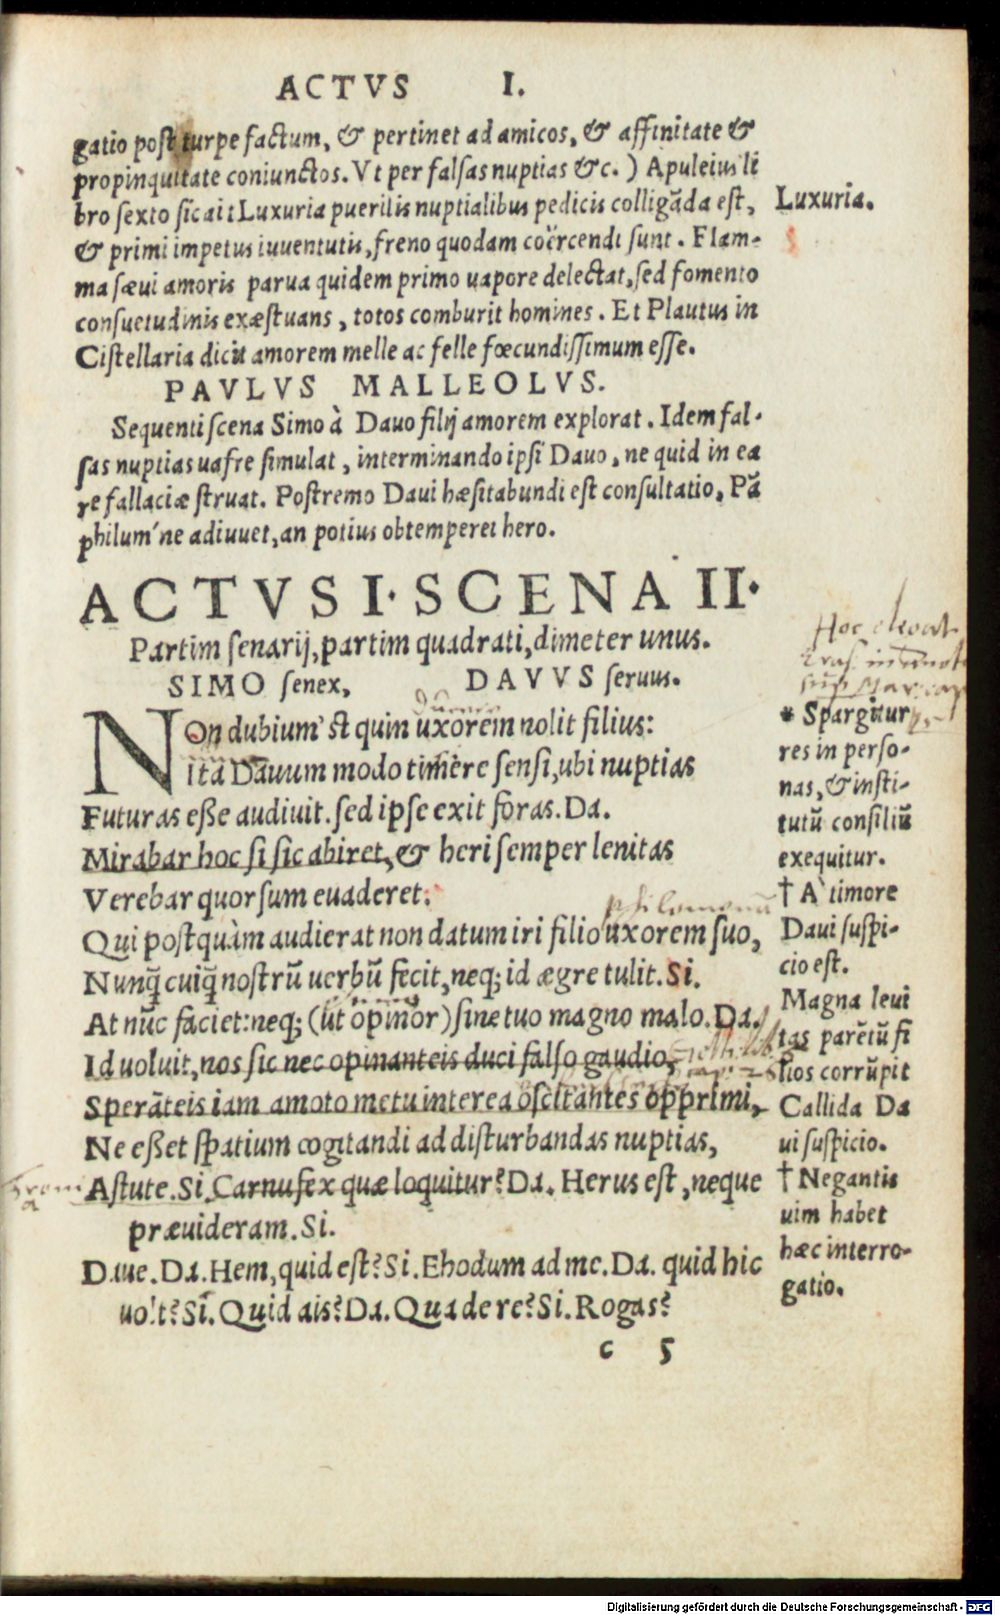 ACTVS I.
gatio post turpe factum, & pertinet ad amicos, & affinitate &
propinquitate coniunctos. Vt per falsas nuptias &c. ) Apuleius li
bro sexto sic ait: Luxuria puerilis nuptialibus pedicis colligāda est,
& primi impetus iuuentutis, freno quodam coërcendi sunt. Flam-
ma sæui amoris parua quidem primo uapore delectat, sed fomento
consuetudinis exæstuans, totos comburit homines. Et Plautus in
Cistellaria dicit amorem melle ac felle fœcundissimum esse.
Luxuria.
PAVLVS MALLEOLVS.
Sequenti scena Simo à Dauo filij amorem explorat. Idem fal-
sas nuptias uafre simulat, interminando ipsi Dauo, ne quid in ea
re fallaciæ struat. Postremo Daui hæsitabundi est consultatio, Pā
philum'ne adiuuet, an potius obtemperet hero.
ACTVS I. SCENA II.
Partim senarij, partim quadrati, dimeter unus.
SIMO senex, DAVVS seruus.
NOn dubium'st quin uxorem nolit filius:
ita Dauum modo timere sensi, ubi nuptias
Futuras eße audiuit. sed ipse exit foras. Da.
Mirabar hoc si sic abiret, & heri semper lenitas
Verebar quorsum euaderet.
Qui postquàm audierat non datum iri filio uxorem suo,
Nunq̄ cuiq̄ nostrū uerbū fecit, neq; id ægre tulit. Si.
At nūc faciet: neq; (ut opinor) sine tuo magno malo. Da.
Id uoluit, nos sic nec opinanteis duci falso gaudio,
Sperāteis iam amoto metu interea oscitantes opprimi,
Ne eßet spatium cogitandi ad disturbandas nuptias,
Astute. Si. Carnufex quæ loquitur? Da. Herus est, neque
præuideram. Si.
Daue. Da. Hem, quid est? Si. Ehodum ad me. Da. quid hic
uolt? Si. Quid ais? Da. Qua de re? Si. Rogas?
Hoc
* Spargitur
res in perso-
nas, & insti-
tutū consiliū
exequitur.
† A timore
Daui suspi-
cio est.
Magna leui
tas parētū fi
lios corrūpit
Callida Da
ui suspicio.
† Negantis
uim habet
hæc interro-
gatio.
c 5
Digitalisierung gefördert durch die Deutsche Forschungsgemeinschaft - DFG